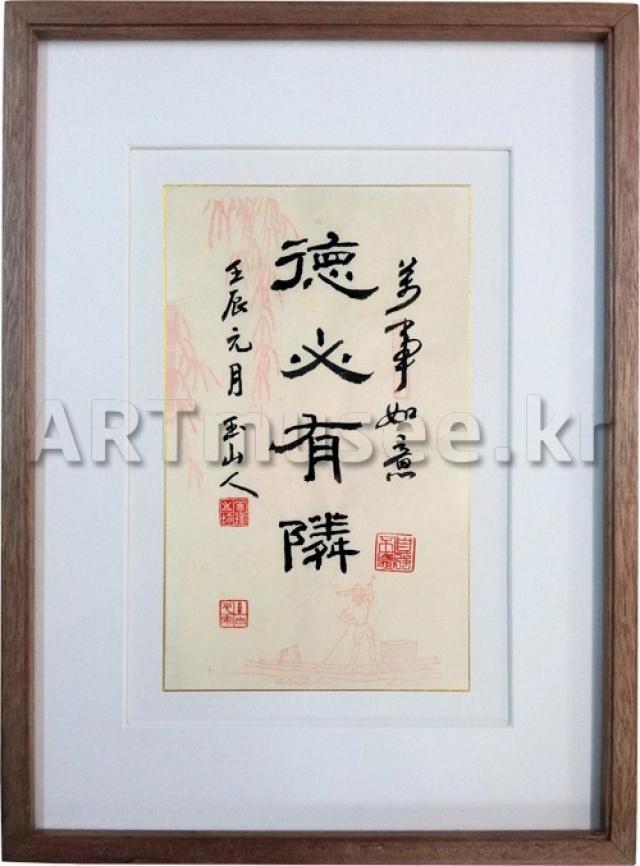 萬事如意
德必有隣
壬辰元月 玉山人
ARTmusee.kr